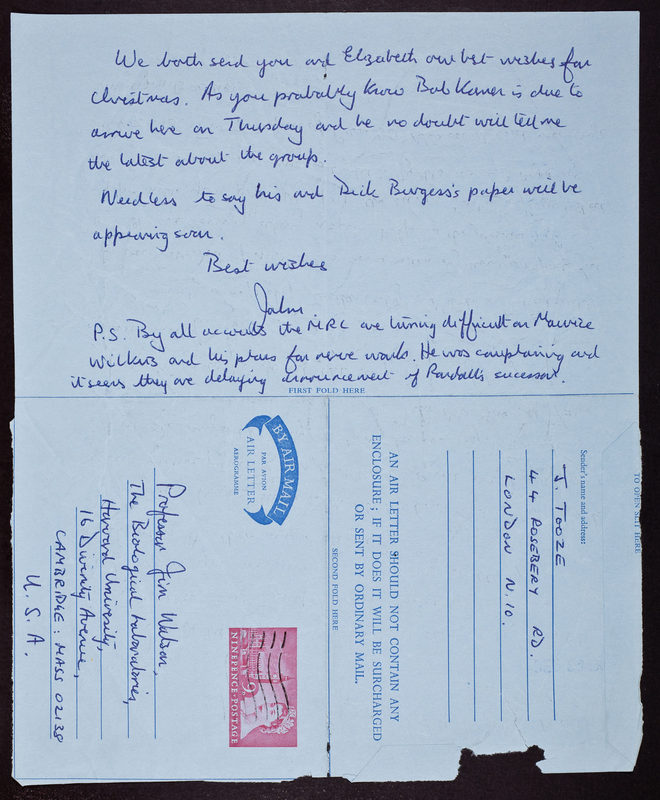 We both send you and Elizabeth our best wishes for
Christmas. As you probably know Bob Kamen is due to
arrive here on Thursday and he no doubt will tell me
the latest about the group.
Needless to say his and Dick Burgess's paper will be
appearing soon.
Best wishes
John
P.S. By all accounts the MRC are turning difficult on Maurice
Wilkins and his plans for nerve work. He was complaining and
it seems they are delaying announcement of Randall's successor.
FIRST FOLD HERE
BY AIR MAIL
AIR LETTER
PAR AVION
AEROGRAMME
Professor Jim Watson,
The Biological Laboratories,
Harvard University,
16 Divinity Avenue,
CAMBRIDGE: MASS 02138
U.S.A.
NINEPENCE·POSTAGE
9D
SECOND FOLD HERE
AN AIR LETTER SHOULD NOT CONTAIN ANY
ENCLOSURE; IF IT DOES IT WILL BE SURCHARGED
OR SENT BY ORDINARY MAIL.
Sender's name and address:
J. TOOZE
44 ROSEBERY RD.
LONDON N.10.
TO OPEN SLIT HERE